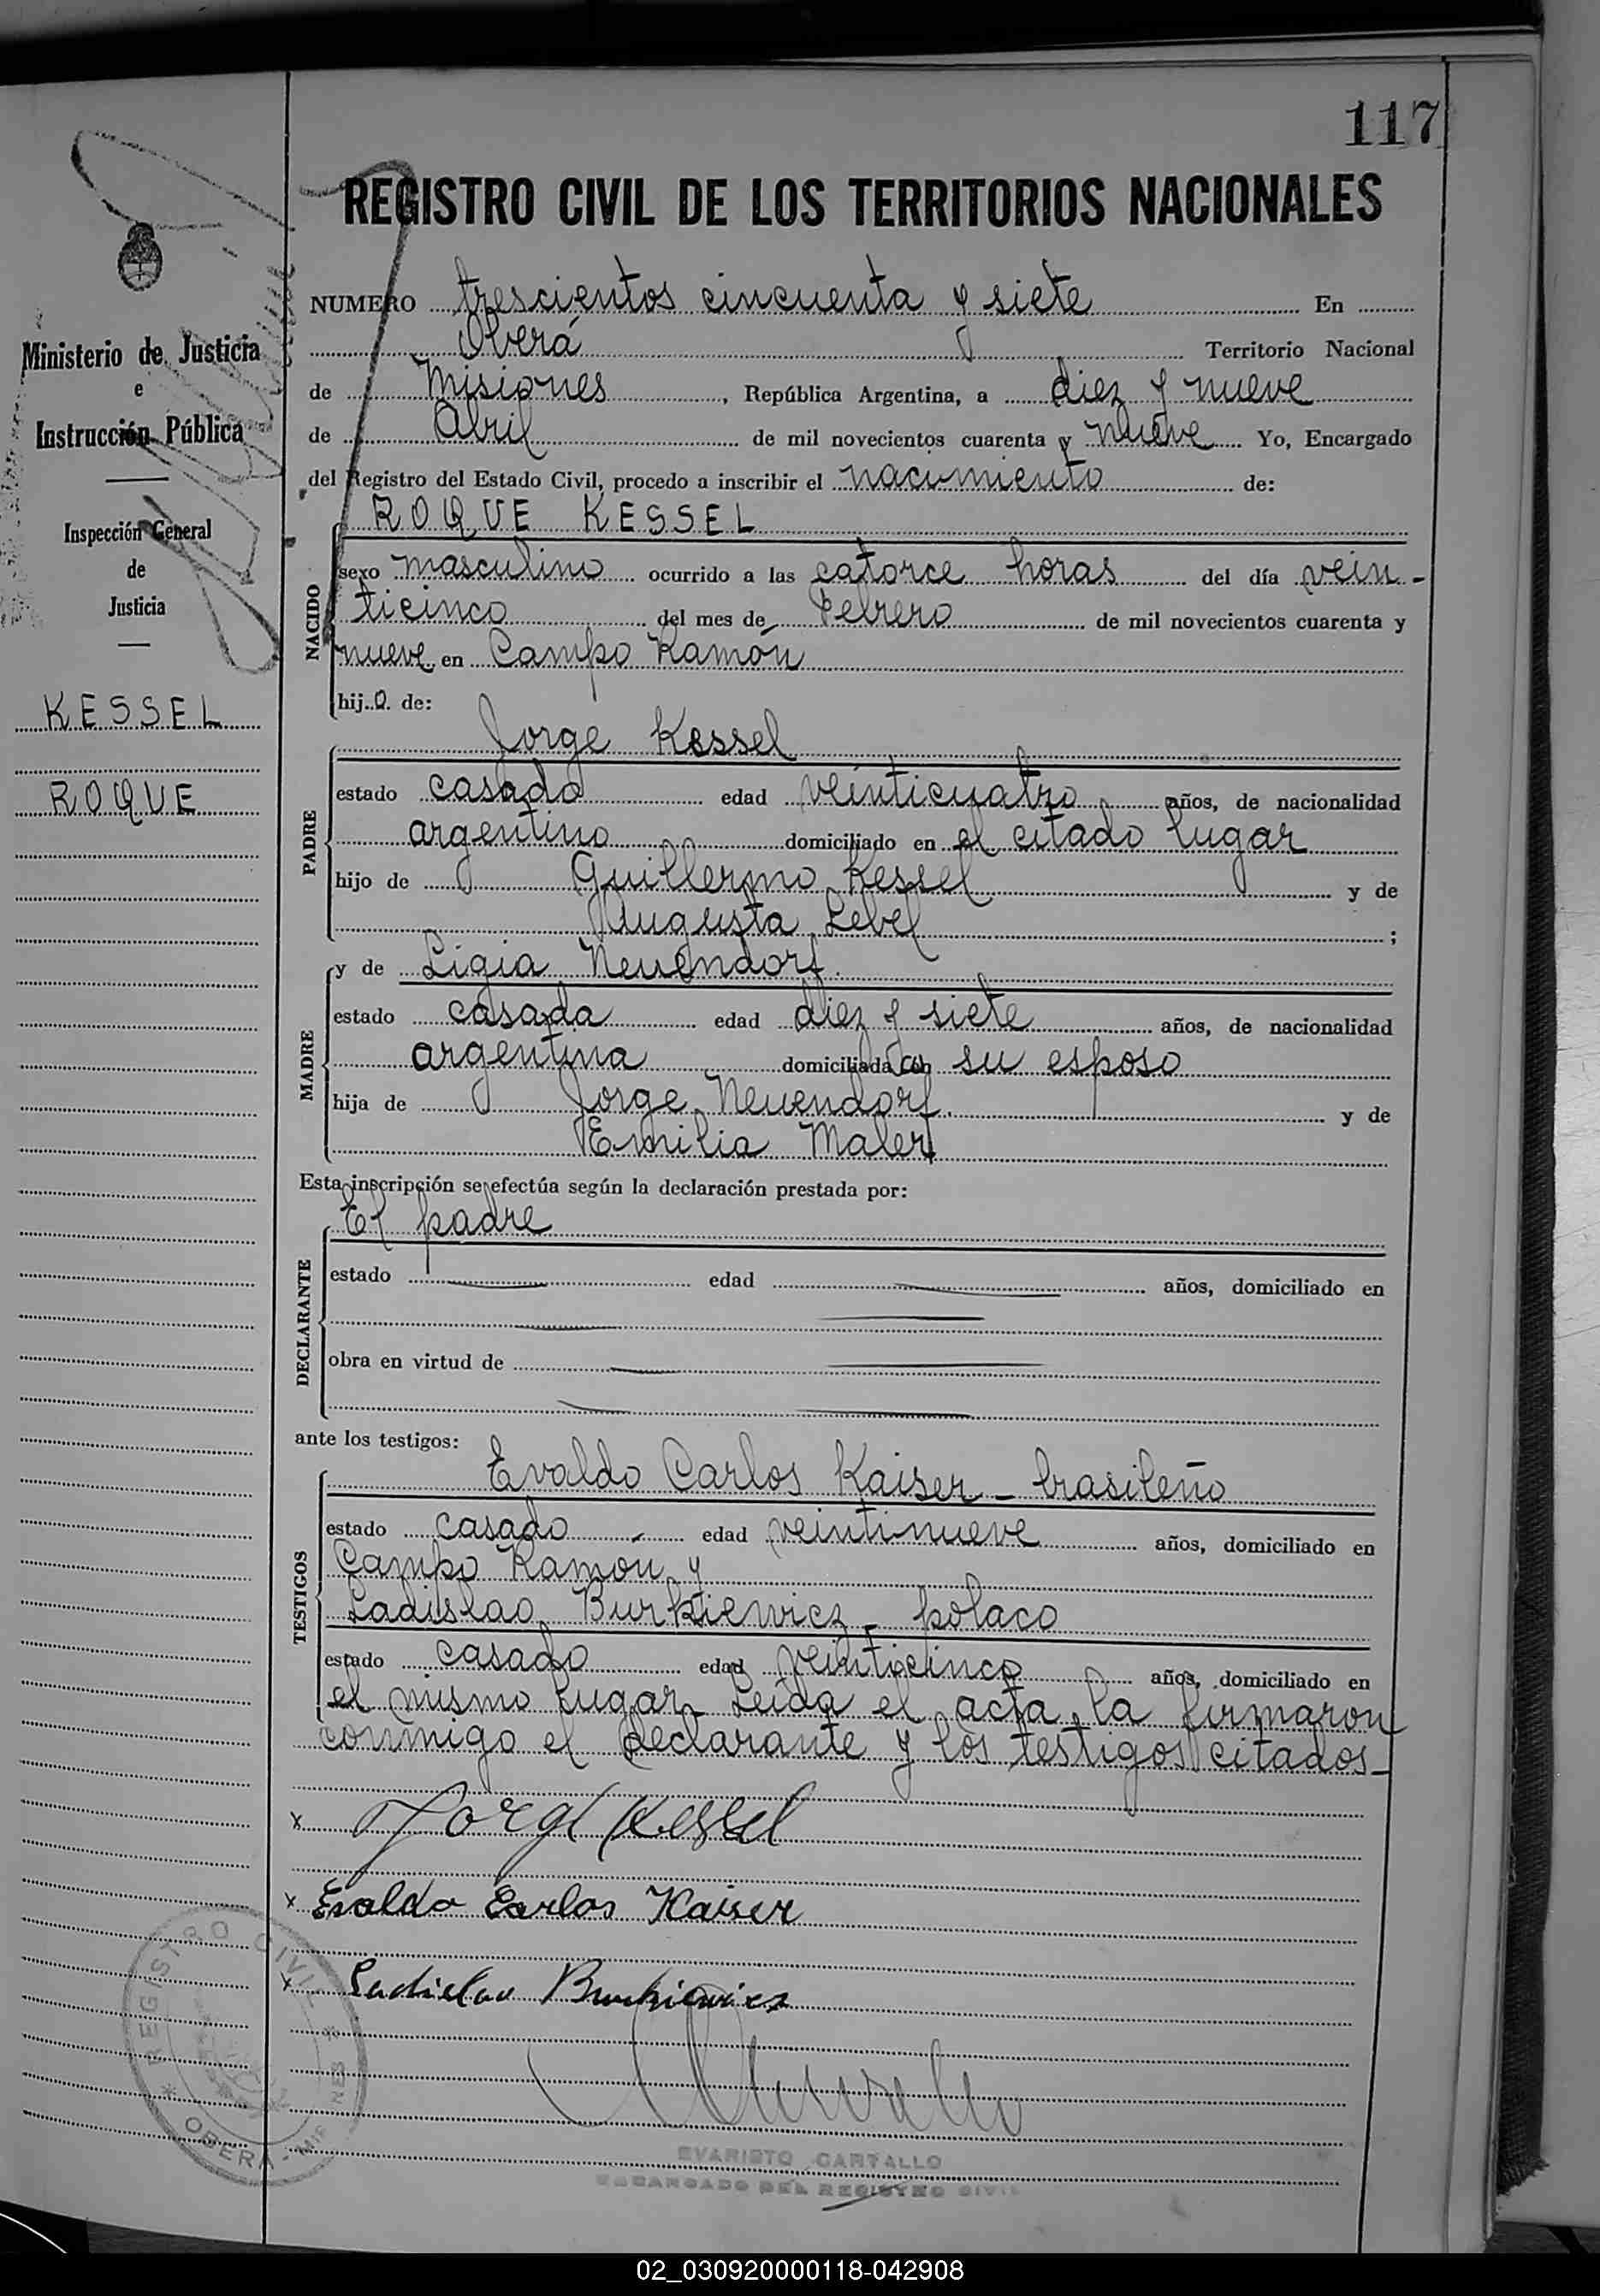 117
REGISTRO CIVIL DE LOS TERRITORIOS NACIONALES
Ministerio de Justicia
e
Instrucción Pública
Inspección General
de
Justicia
KESSEL
ROQUE
NUMERO trescientos cincuenta y siete En
Oberá Territorio Nacional
de Misiones, República Argentina, a diez y nueve
de Abril de mil novecientos cuarenta y nueve Yo, Encargado
del Registro del Estado Civil, procedo a inscribir el nacimiento de:
NACIDO
ROQUE KESSEL
sexo masculino ocurrido a las catorce horas del día vein-
ticinco del mes de Febrero de mil novecientos cuarenta y
nueve en Campo Ramón
hijo de:
PADRE
Jorge Kessel
estado casado edad veinticuatro años, de nacionalidad
argentino domiciliado en el citado lugar
hijo de Guillermo Kessel y de
Augusta Lebel ;
MADRE
y de Ligia Neuendorf.
estado casada edad diez y siete años, de nacionalidad
argentina domiciliada con su esposo
hija de Jorge Neuendorf. y de
Emilia Maler
Esta inscripción se efectúa según la declaración prestada por:
DECLARANTE
El padre
estado edad años, domiciliado en
obra en virtud de
ante los testigos:
TESTIGOS
Evaldo Carlos Kaiser - brasileño
estado casado edad veintinueve años, domiciliado en
Campo Ramón y
Ladislao Burkiewicz - polaco
estado casado edad veinticinco años, domiciliado en
el mismo lugar. Leída el acta, la firmaron
conmigo el declarante y los testigos citados-
x Jorge Kessel
x Evaldo Carlos Kaiser
x Ladislao Burkiewicz
REGISTRO CIVIL
OBERA - MISIONES
EVARISTO CARTALLO
ENCARGADO DEL REGISTRO CIVIL
02_030920000118-042908